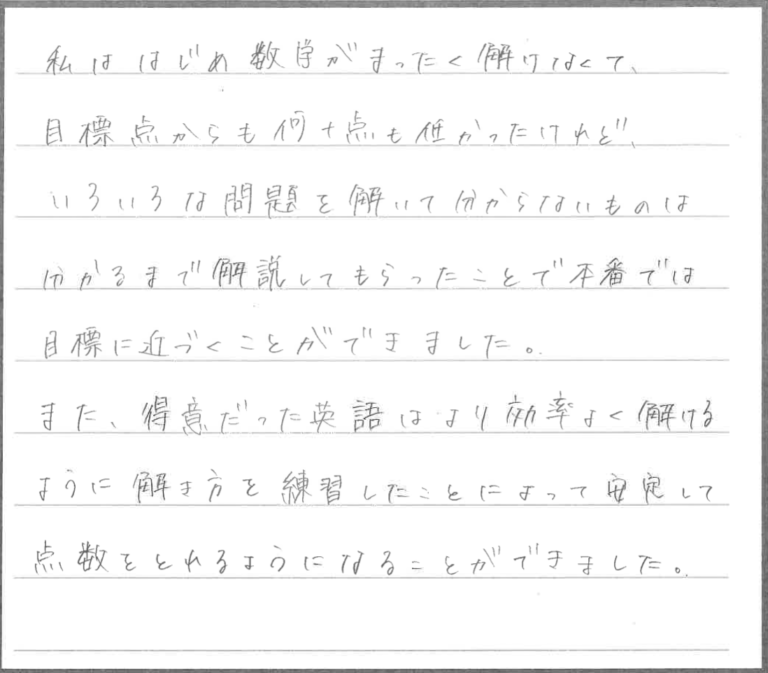 私ははじめ数学がまったく解けなくて、
目標点からも何十点も低かったけれど、
いろいろな問題を解いて分からないものは
分かるまで解説してもらったことで本番では
目標に近づくことができました。
また、得意だった英語はより効率よく解ける
ように解き方を練習したことによって安定して
点数をとれるようになることができました。